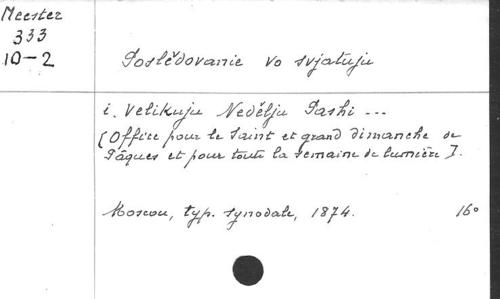 Meester
333
10-2
Poslĕdovanie vo svjatuju
i. velikuju Nedĕlju Pashi ...
[Office pour le Saint et grand dimanche de
Pâques et pour toute la semaine de lumière].
Moscou, typ. synodale, 1874. 16°